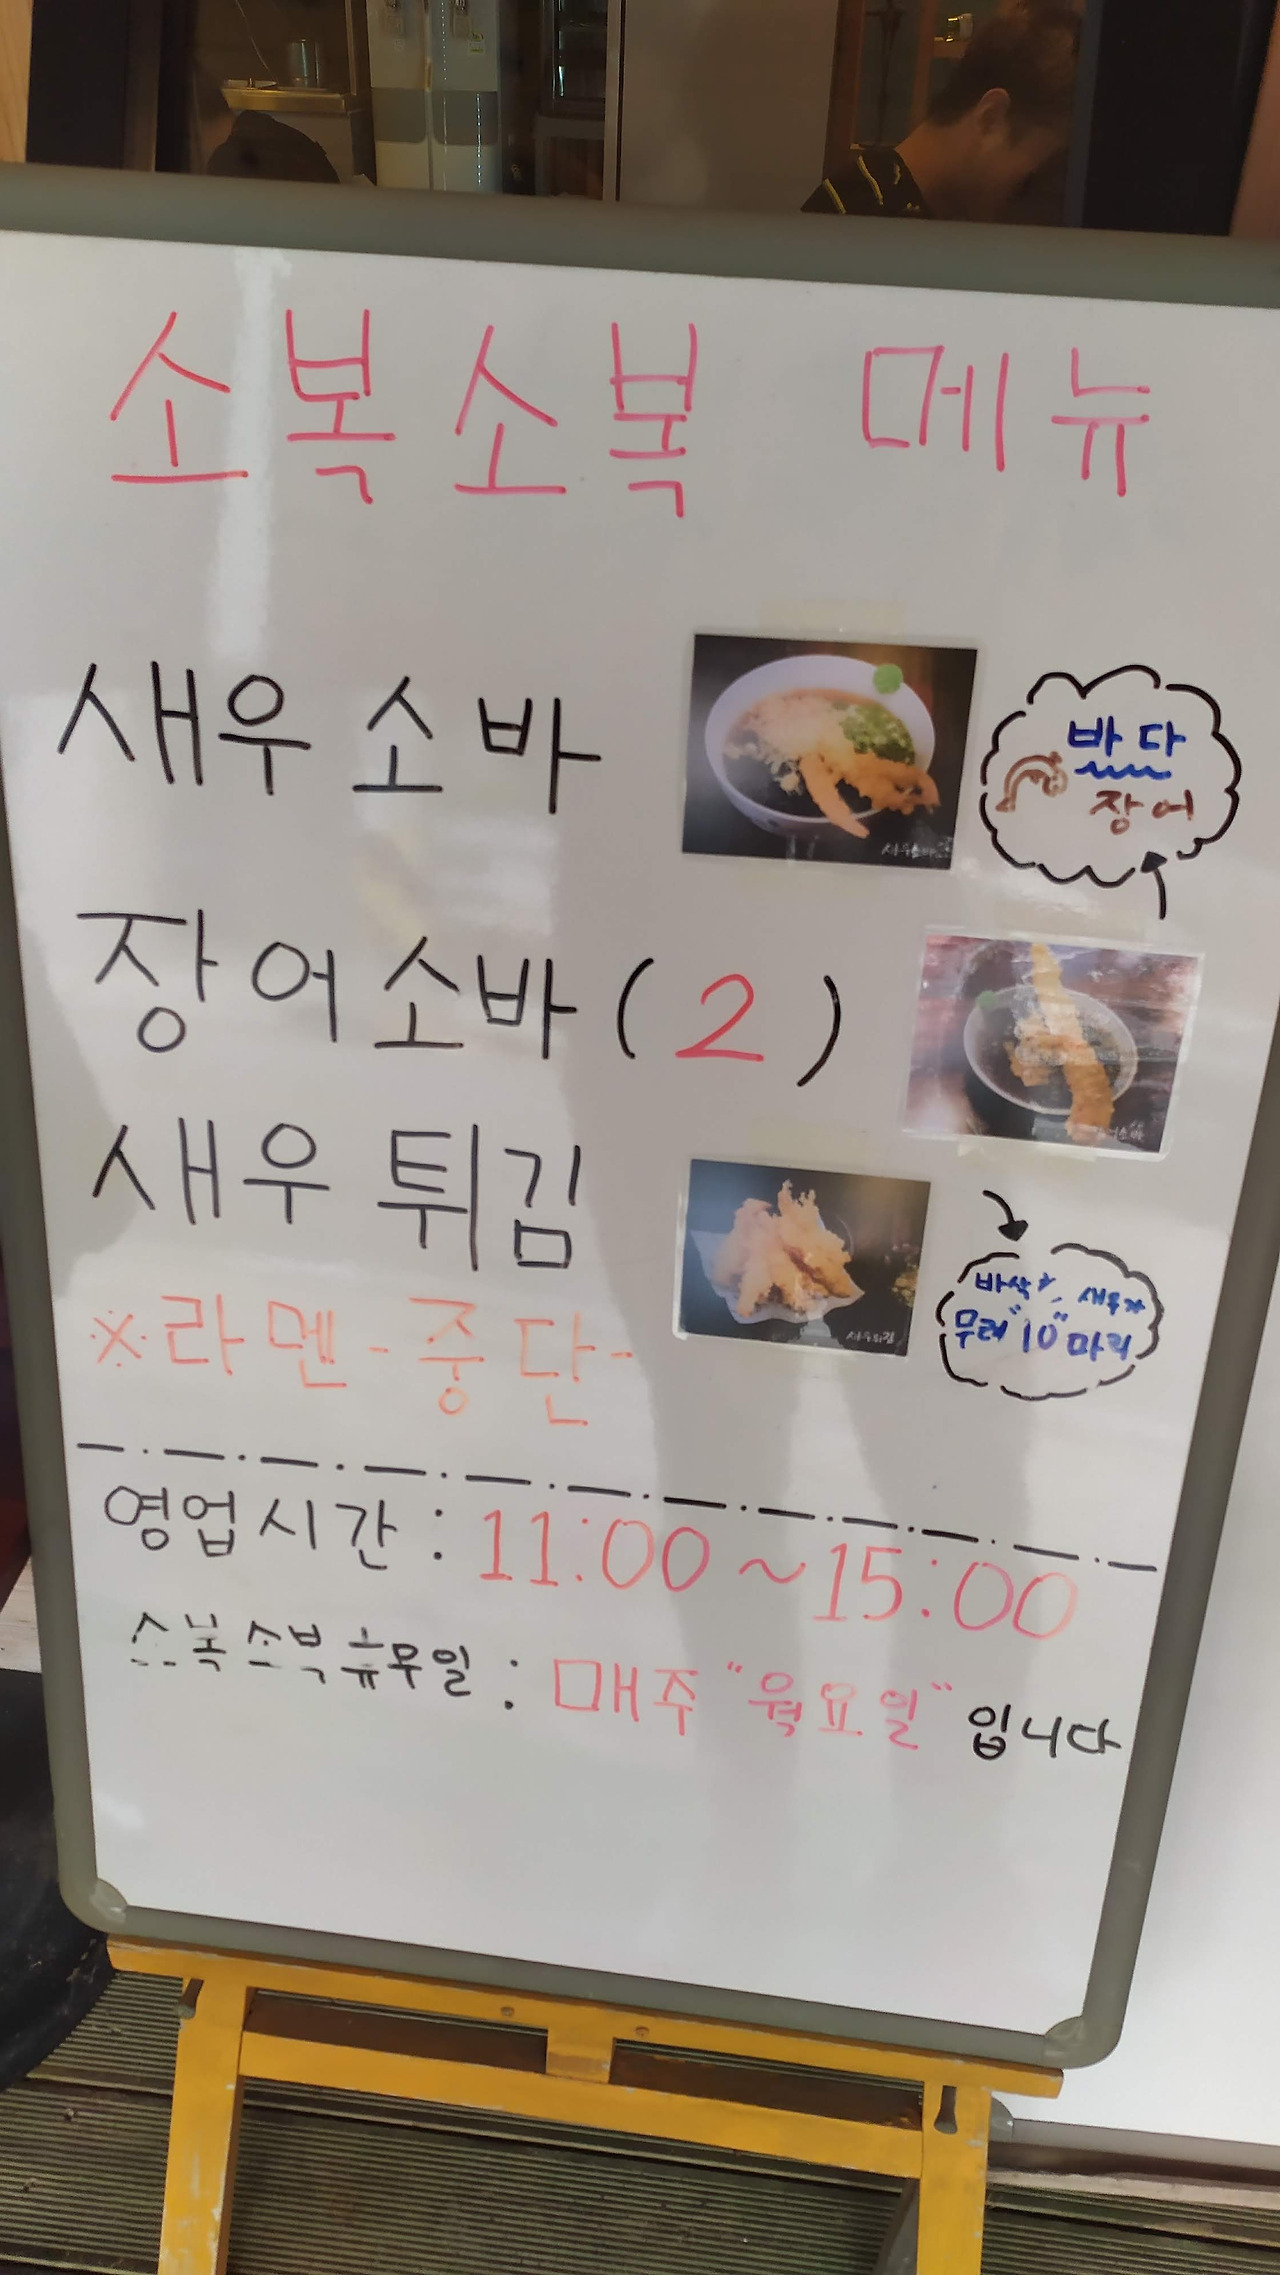 소복소복 메뉴
새우 소바
새우소바
바다
장어
장어소바(2)
장어소바
새우 튀김
새우튀김
바삭 새우가
무려 "10" 마리
※라멘-중단-
영업시간 : 11:00 ~ 15:00
소복소복 휴무일 : 매주 "월요일" 입니다